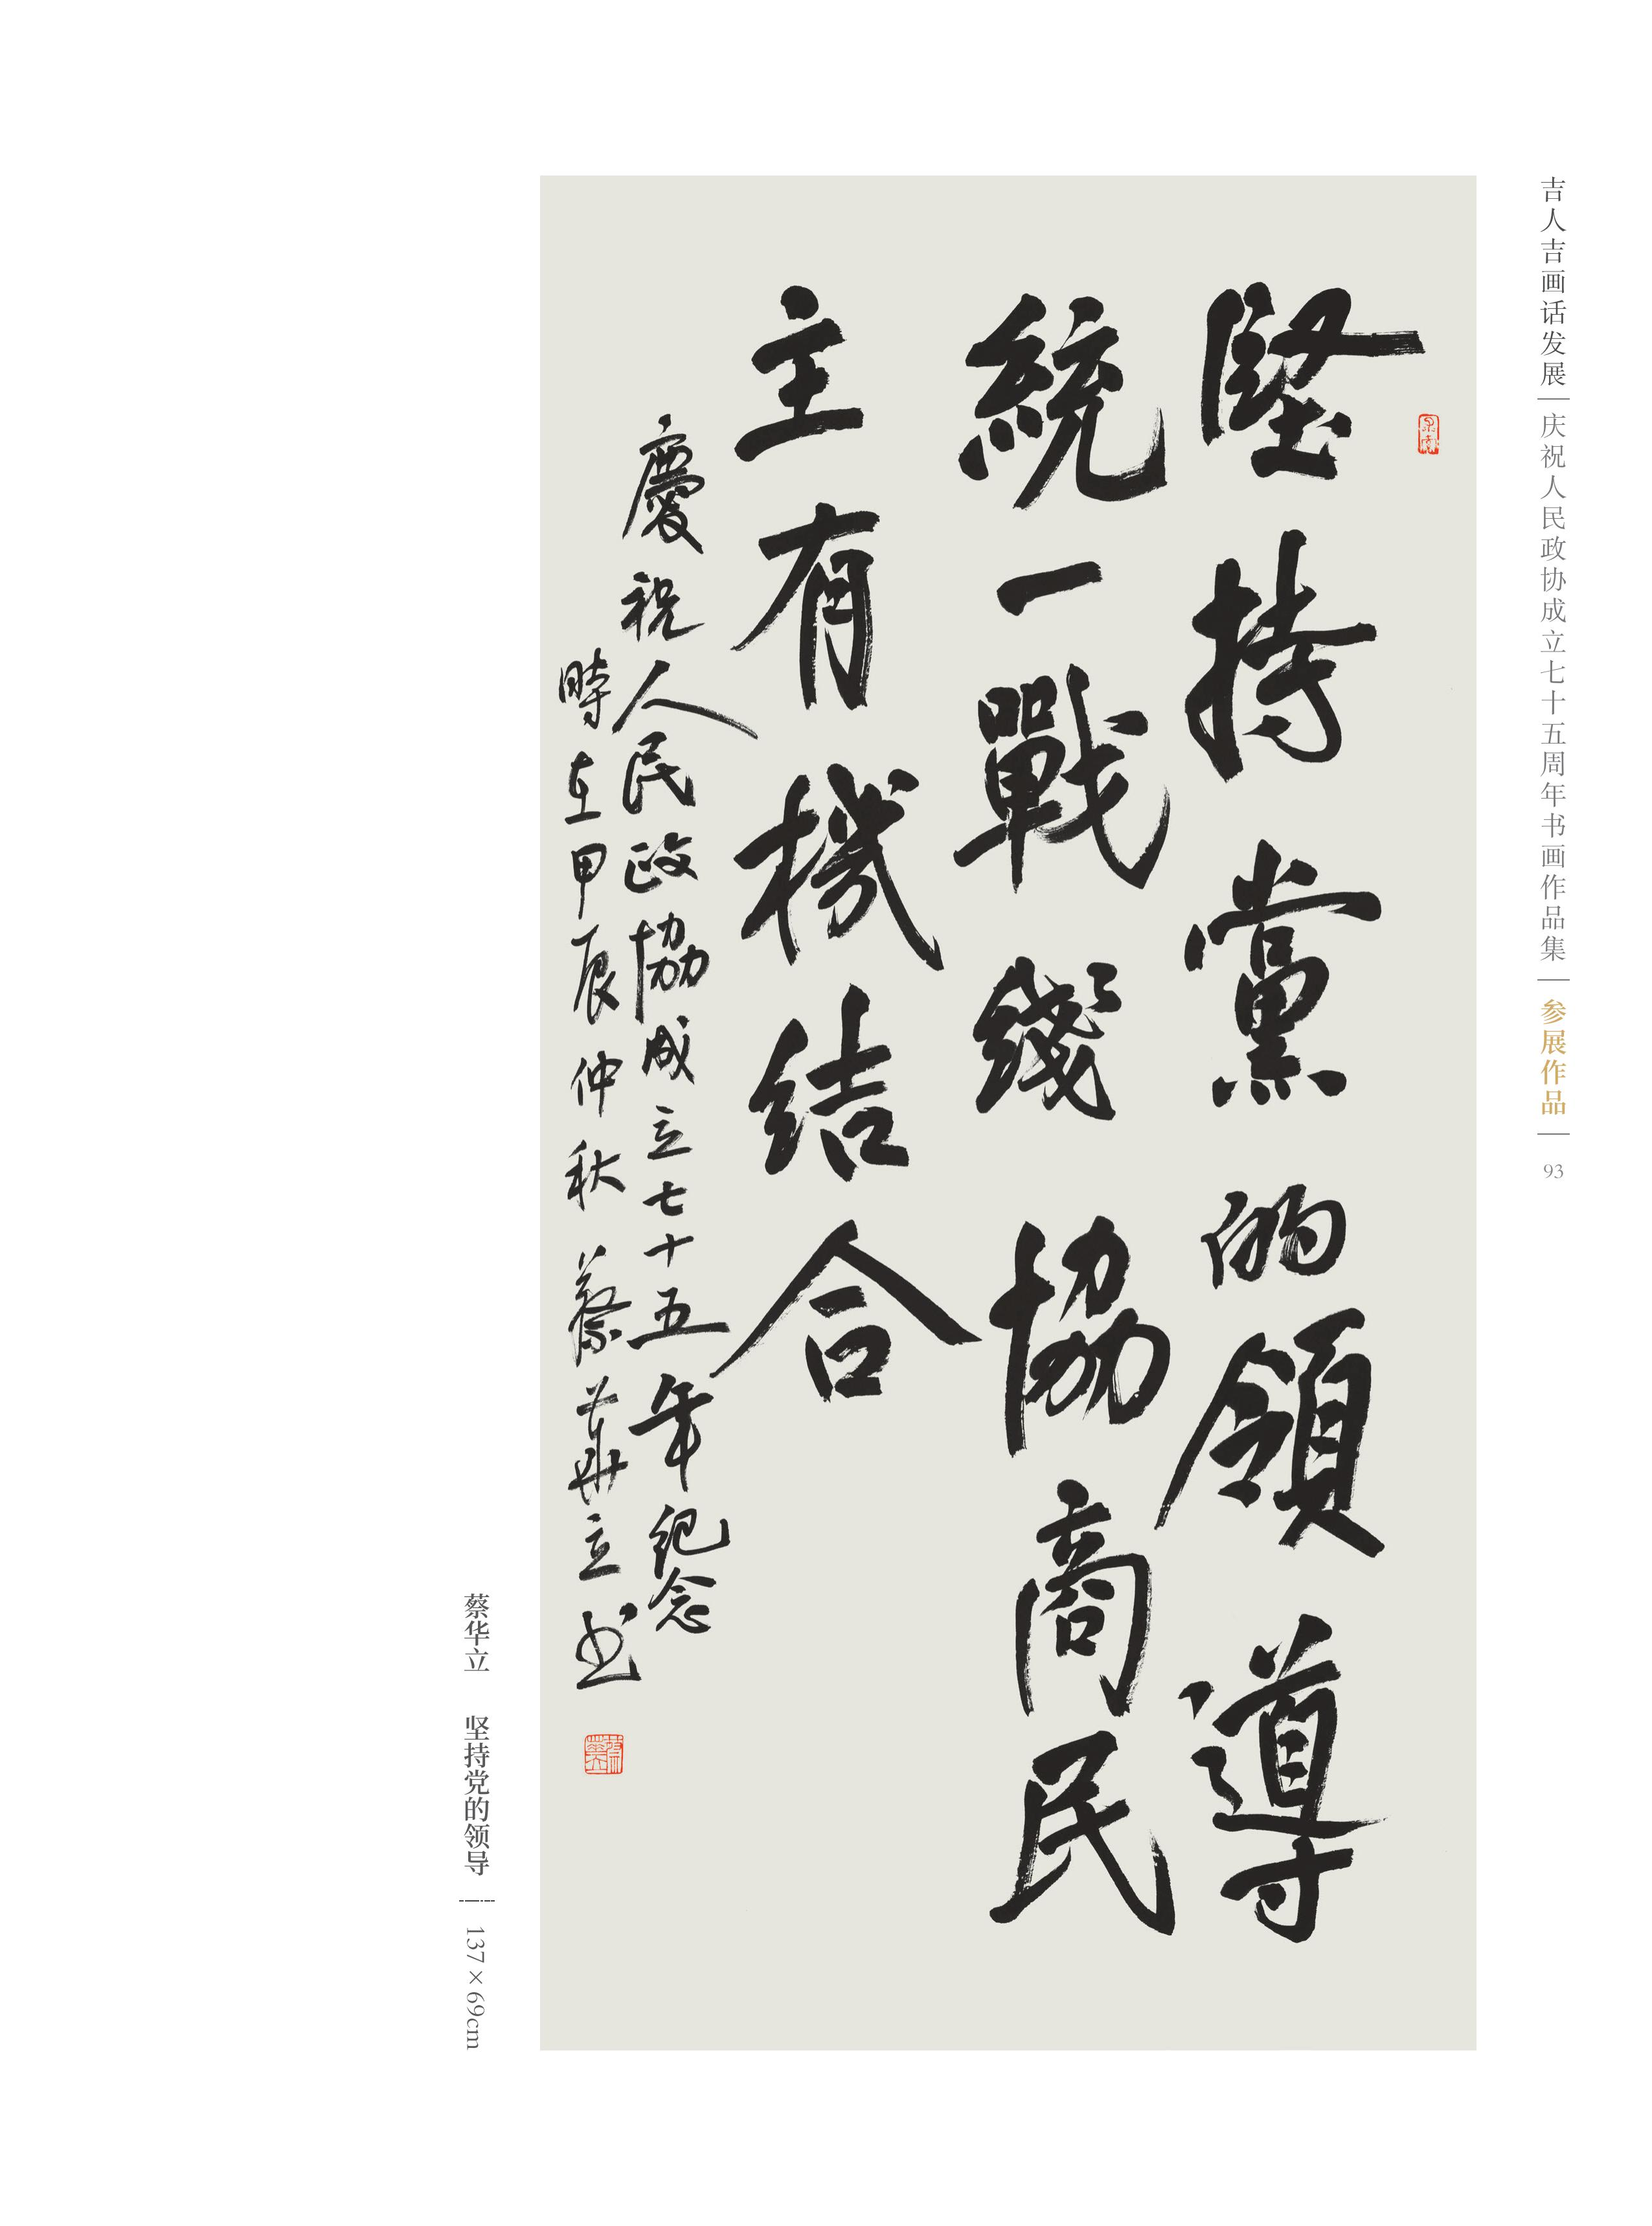 吉人吉画话发展
庆祝人民政协成立七十五周年书画作品集
参展作品
93
堅持黨的領導
統一戰綫協商民
主有機結合
慶祝人民政協成立七十五年纪念
時在甲辰仲秋蔡華立书
蔡华立 坚持党的领导
137×69cm